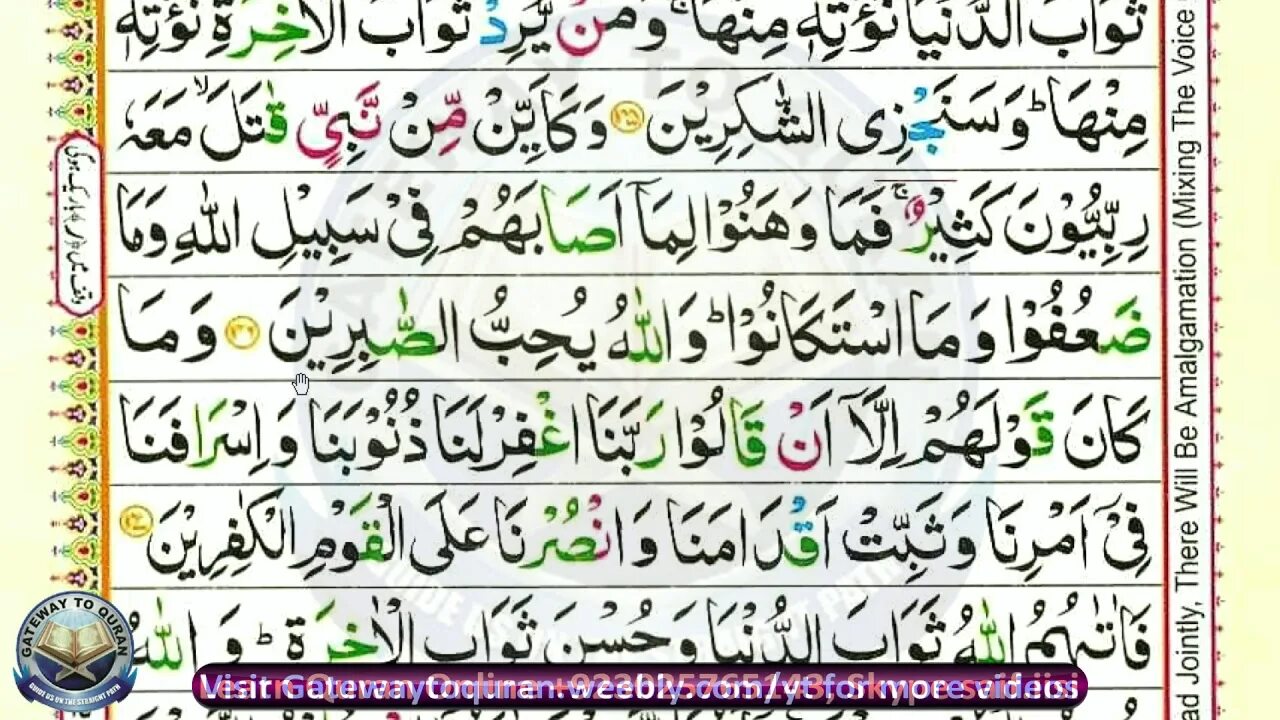 ثَوَابَ الدُّنْيَا نُؤْتِهٖ مِنْهَا ۚ وَمَنْ يُّرِدْ ثَوَابَ الْاٰخِرَةِ نُؤْتِهٖ
مِنْهَا ؕ وَسَنَجْزِى الشّٰكِرِيْنَ وَكَاَيِّنْ مِّنْ نَّبِىٍّ قٰتَلَ ۙ مَعَهٗ
رِبِّيُّوْنَ كَثِيْرٌ ۚ فَمَا وَهَنُوْا لِمَاۤ اَصَابَهُمْ فِىْ سَبِيْلِ اللّٰهِ وَمَا
ضَعُفُوْا وَمَا اسْتَكَانُوْا ؕ وَاللّٰهُ يُحِبُّ الصّٰبِرِيْنَ ﴿۱۴۶﴾ وَمَا
كَانَ قَوْلَهُمْ اِلَّاۤ اَنْ قَالُوْا رَبَّنَا اغْفِرْلَنَا ذُنُوْبَنَا وَاِسْرَافَنَا
فِىْۤ اَمْرِنَا وَثَبِّتْ اَقْدَامَنَا وَانْصُرْنَا عَلَى الْقَوْمِ الْكٰفِرِيْنَ
فَاٰتٰٮهُمُ اللّٰهُ ثَوَابَ الدُّنْيَا وَحُسْنَ ثَوَابِ الْاٰخِرَةِ ؕ وَاللّٰهُ
ad Jointly, There Will Be Amalgamation (Mixing The Voice
GATEWAY TO QURAN
GUIDE US ON THE STRAIGHT PATH
Visit Gatewaytoquran.weebly.com/yt for more videos